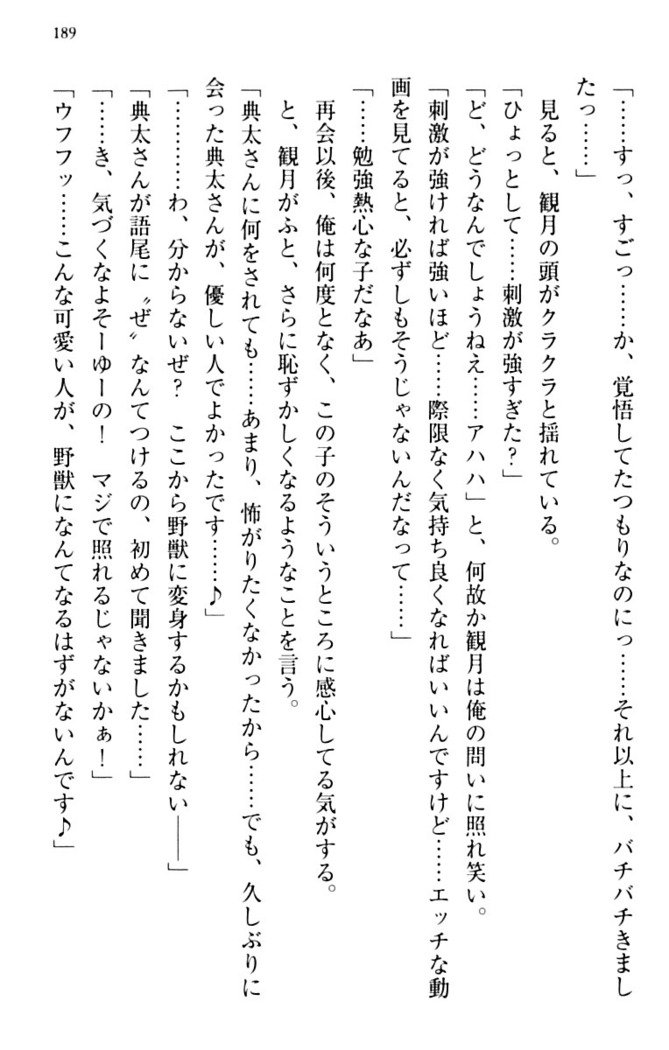 189
「……すっ、すごっ……か、覚悟してたつもりなのにっ……それ以上に、バチバチきまし
たっ……」
見ると、観月の頭がクラクラと揺れている。
「ひょっとして……刺激が強すぎた？」
「ど、どうなんでしょうねえ……アハハ」と、何故か観月は俺の問いに照れ笑い。
「刺激が強ければ強いほど……際限なく気持ち良くなればいいんですけど……エッチな動
画を見てると、必ずしもそうじゃないんだなって……」
「……勉強熱心な子だなあ」
再会以後、俺は何度となく、この子のそういうところに感心してる気がする。
と、観月がふと、さらに恥ずかしくなるようなことを言う。
「典太さんに何をされても……あまり、怖がりたくなかったから……でも、久しぶりに
会った典太さんが、優しい人でよかったです……♪」
「…………わ、分からないぜ？　ここから野獣に変身するかもしれない――」
「典太さんが語尾に〝ぜ〟なんてつけるの、初めて聞きました……」
「……き、気づくなよそーゆーの！　マジで照れるじゃないかぁ！」
「ウフフッ……こんな可愛い人が、野獣になんてなるはずがないんです♪」